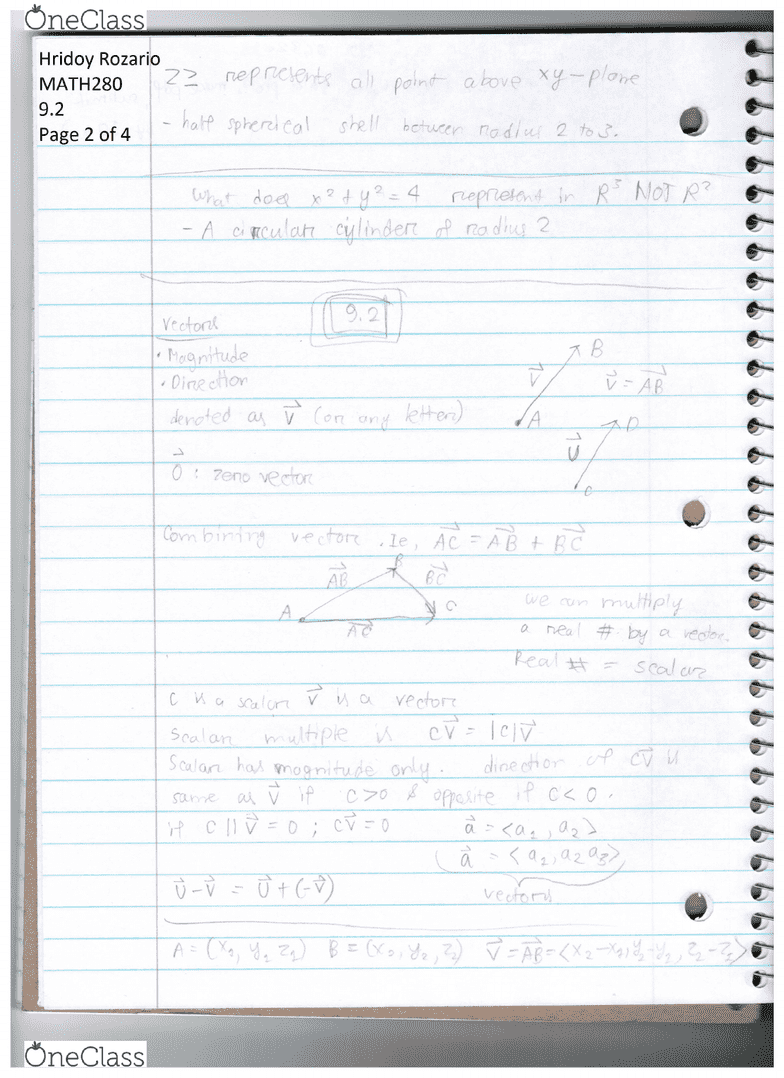 OneClass
Hridoy Rozario
MATH280
9.2
Page 2 of 4
Z≥ represents all point above xy-plane
- half spherical shell between radius 2 to 3.
What does x² + y² = 4 represent in R³ NOT R²
- A circular cylinder of radius 2
9.2
Vectors
• Magnitude
• Direction
denoted as v⃗ (or any letter)
B
v⃗
v⃗ = A⃗B⃗
A
D
U⃗
C
0⃗ : zero vector
Combining vector. Ie, A⃗C⃗ = A⃗B⃗ + B⃗C⃗
A⃗B⃗ B B⃗C⃗
A C
A⃗C⃗
we can multiply
a real # by a vector.
Real # = scalar
c is a scalar v⃗ is a vector
scalar multiple is cv⃗ = |c|v⃗
Scalar has magnitude only. direction of cv⃗ is
same as v⃗ if c>0 & opposite if c<0.
if c||v⃗ = 0 ; cv⃗ = 0
a⃗ = <a₁, a₂>
a⃗ = <a₁, a₂ a₃>
vectors
U⃗-V⃗ = U⃗+(-V⃗)
A = (x₁, y₁ z₁) B = (x₂, y₂, z₂) v⃗ = A⃗B⃗ = <x₂-x₁, y₂-y₂, z₂-z₁>
OneClass